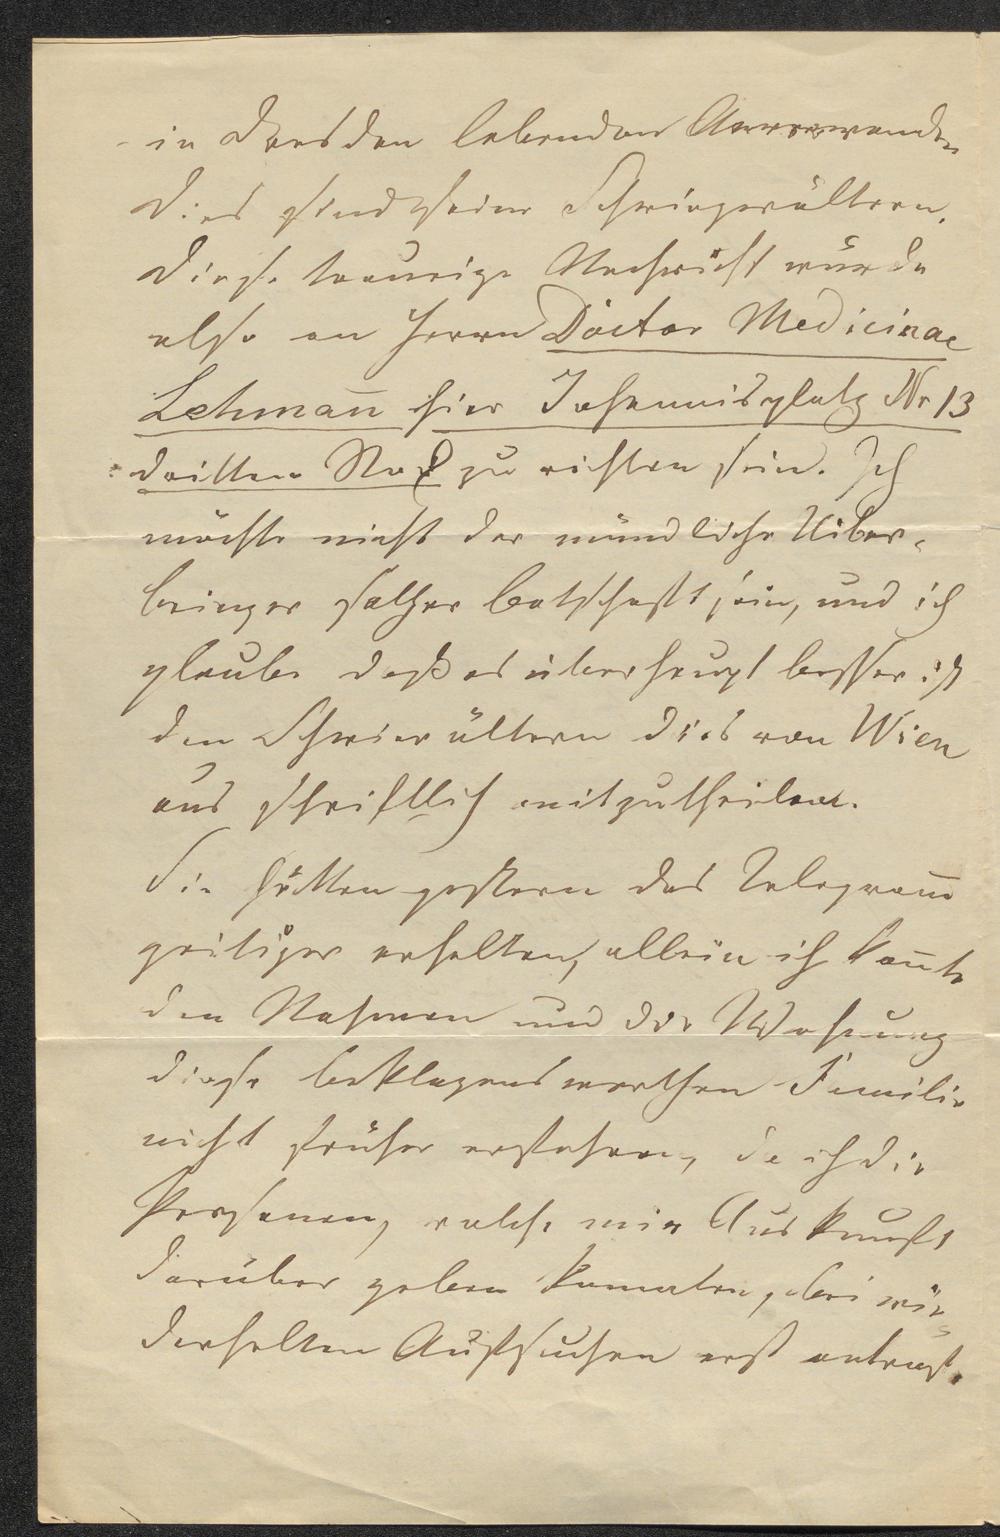 in Dresden lebenden Anverwandten
Dies sind seine Schwiegerältern.
Diese traurige Nachricht würde
also an Herrn Doctor Medicinae
Lehman̄ hier Johannisplatz Nr 13
dritten Stock zu richten sein. Ich
möchte nicht der mündliche Uiber-
bringer solcher Botschaft sein, und ich
glaube daß es überhaupt besser ist
den Schwierältern dies von Wien
aus schriftlich mitzutheilen.
Sie hätten gestern das Telegram̄
zeitiger erhalten, allein ich kon̄te
den Nahmen und die Wohnung
diese beklagenswerthen Familie
nicht früher erfahren, da ich die
Personen, welche mir Auskunft
darüber geben konnten, bei wie-
derholten Aufsuchen erst antraf.